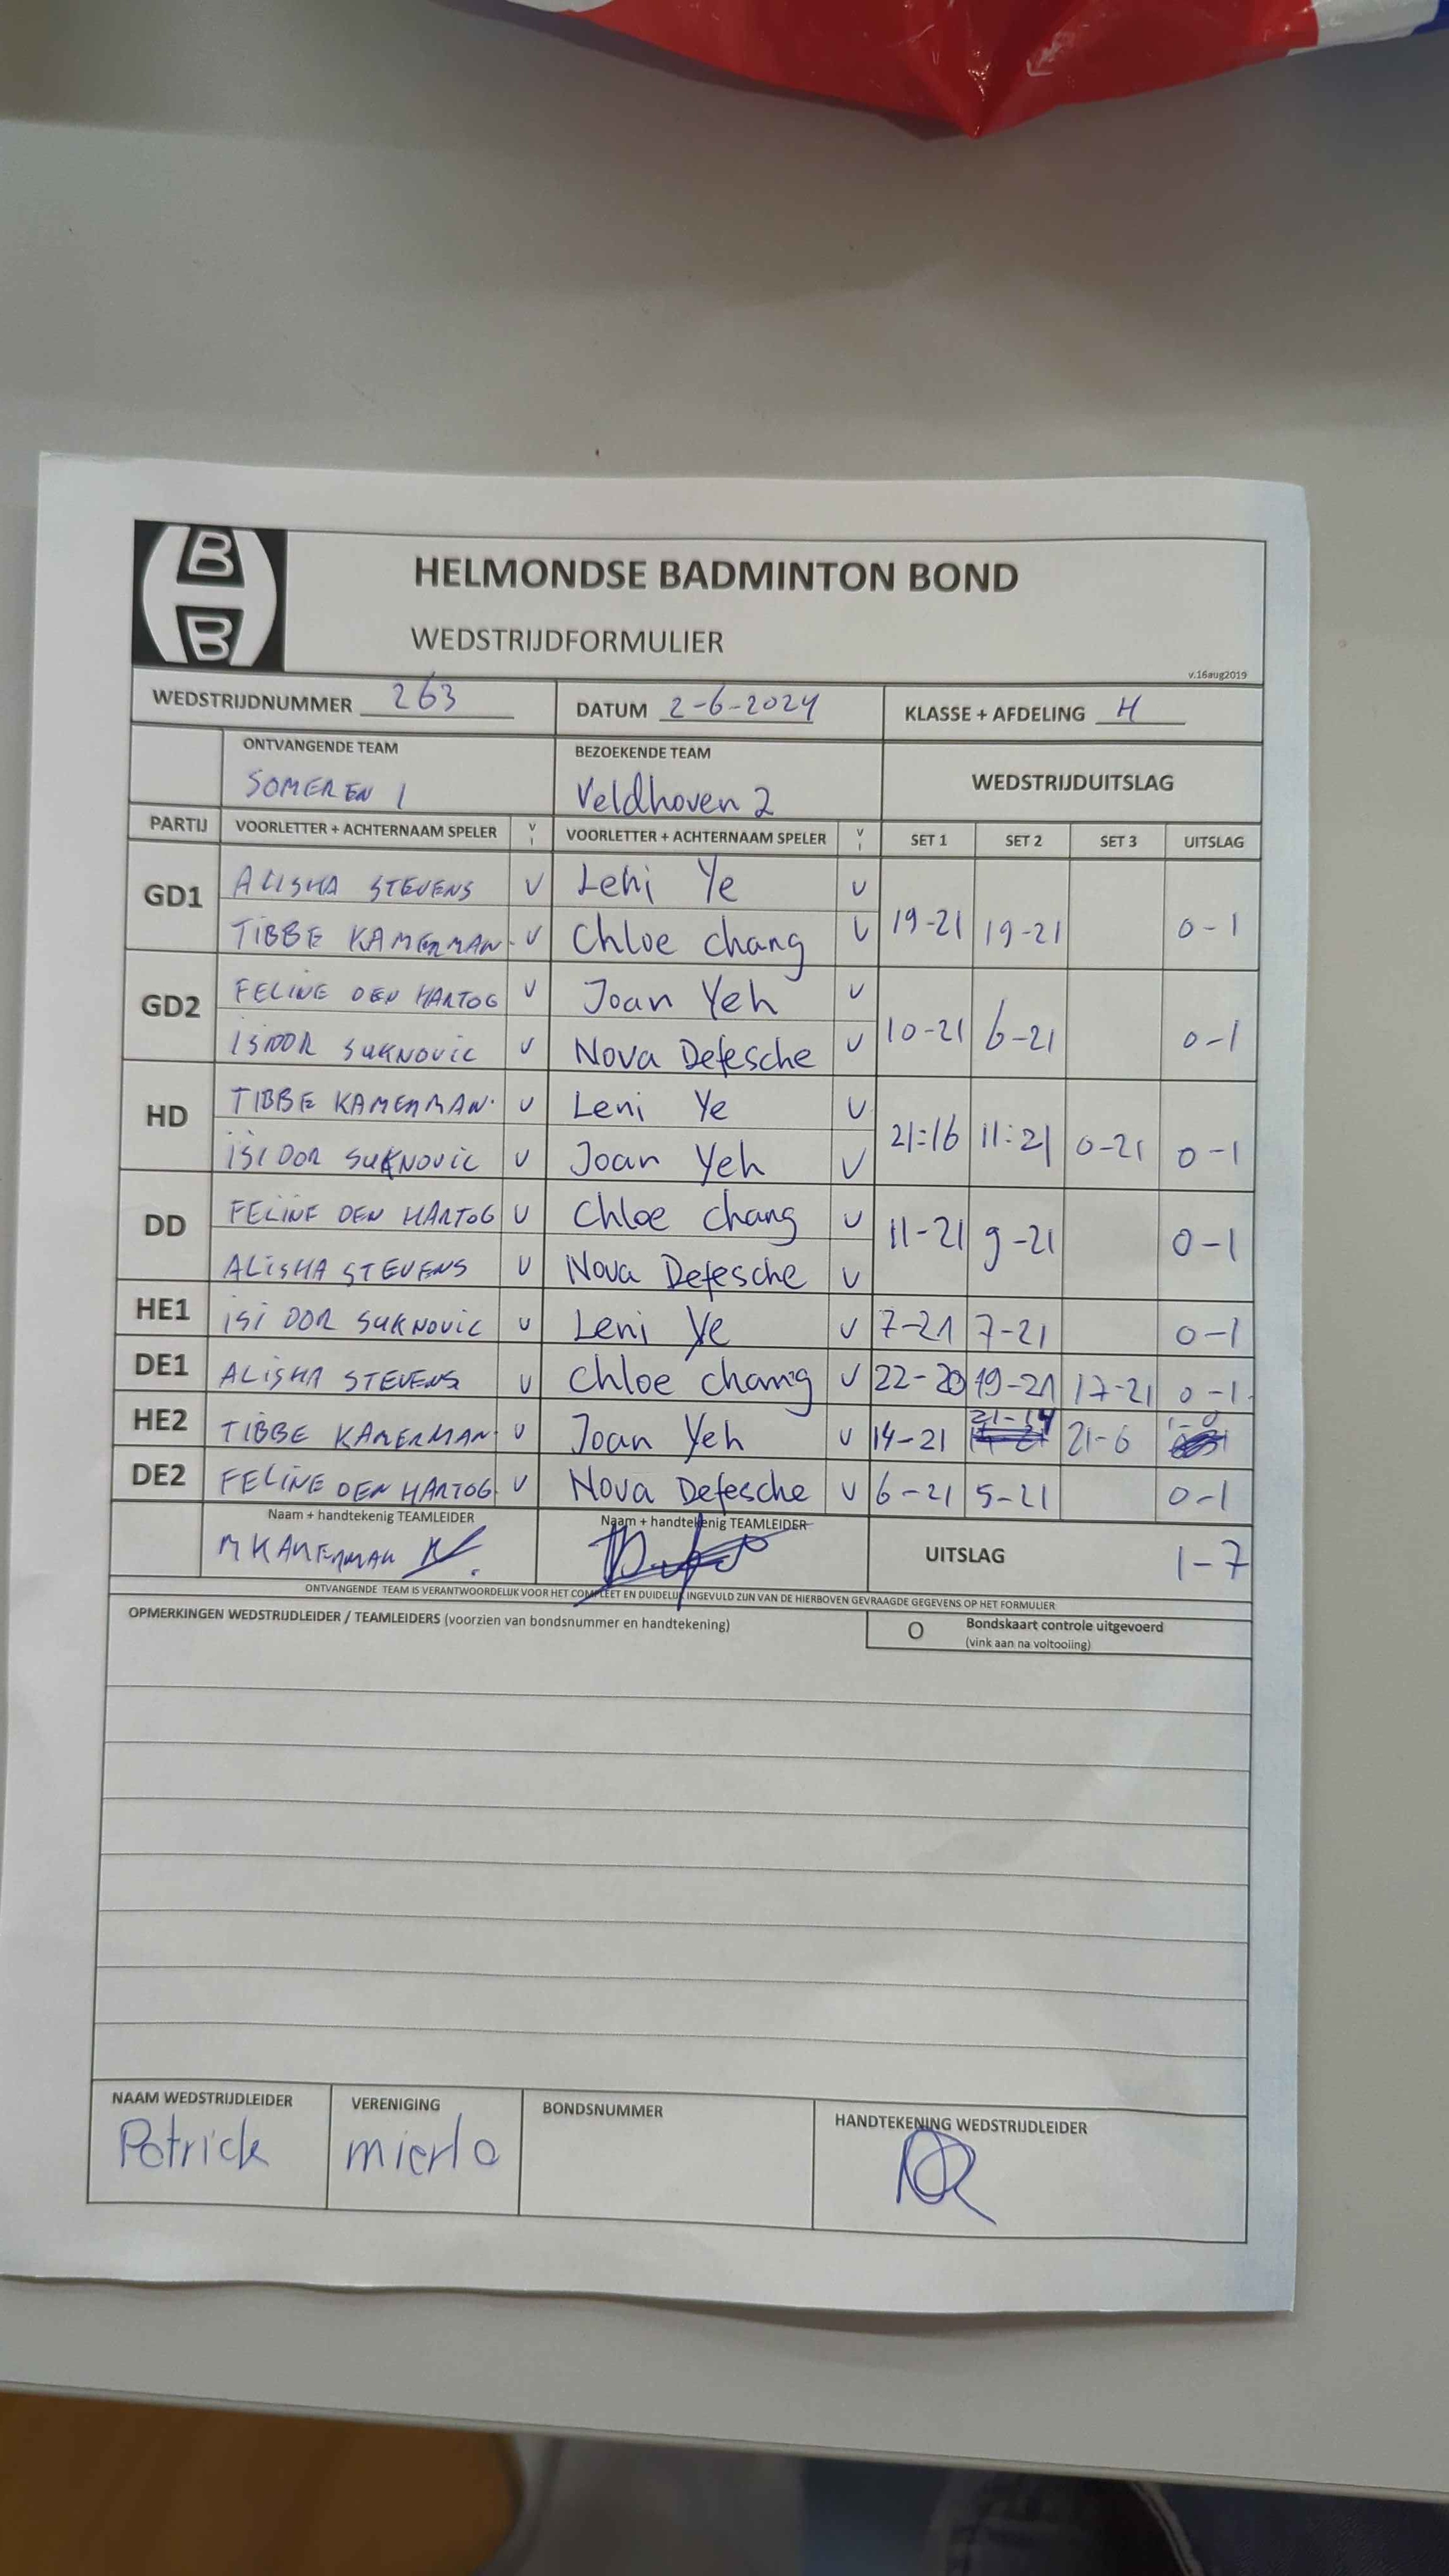 B
B
HELMONDSE BADMINTON BOND
WEDSTRIJDFORMULIER
v.16aug2019
WEDSTRIJDNUMMER 263 DATUM 2-6-2024 KLASSE + AFDELING H
ONTVANGENDE TEAM BEZOEKENDE TEAM WEDSTRIJDUITSLAG
SOMEREN 1 Veldhoven 2
PARTIJ VOORLETTER + ACHTERNAAM SPELER V I VOORLETTER + ACHTERNAAM SPELER V I SET 1 SET 2 SET 3 UITSLAG
GD1 ALISHA STEVENS V Leni Ye V
TIBBE KAMERMAN V Chloe chang V 19-21 19-21 0-1
GD2 FELINE DEN HARTOG V Joan Yeh V
ISIDOR SUKNOVIC V Nova Defesche V 10-21 6-21 0-1
HD TIBBE KAMERMAN V Leni Ye V
ISIDOR SUKNOVIC V Joan Yeh V 21:16 11:21 0-21 0-1
DD FELINE DEN HARTOG V Chloe chang V
ALISHA STEVENS V Nova Defesche V 11-21 9-21 0-1
HE1 ISIDOR SUKNOVIC V Leni Ye V 7-21 7-21 0-1
DE1 ALISHA STEVENS V Chloe chang V 22-20 19-21 17-21 0-1
HE2 TIBBE KAMERMAN V Joan Yeh V 14-21 21-14 21-6 1-0
DE2 FELINE DEN HARTOG V Nova Defesche V 6-21 5-21 0-1
Naam + handtekenig TEAMLEIDER Naam + handtekenig TEAMLEIDER
M KAMERMAN UITSLAG 1-7
ONTVANGENDE TEAM IS VERANTWOORDELIJK VOOR HET COMPLEET EN DUIDELIJK INGEVULD ZIJN VAN DE HIERBOVEN GEVRAAGDE GEGEVENS OP HET FORMULIER
OPMERKINGEN WEDSTRIJDLEIDER / TEAMLEIDERS (voorzien van bondsnummer en handtekening)
O Bondskaart controle uitgevoerd
(vink aan na voltooiing)
NAAM WEDSTRIJDLEIDER VERENIGING BONDSNUMMER HANDTEKENING WEDSTRIJDLEIDER
Patrick mierlo